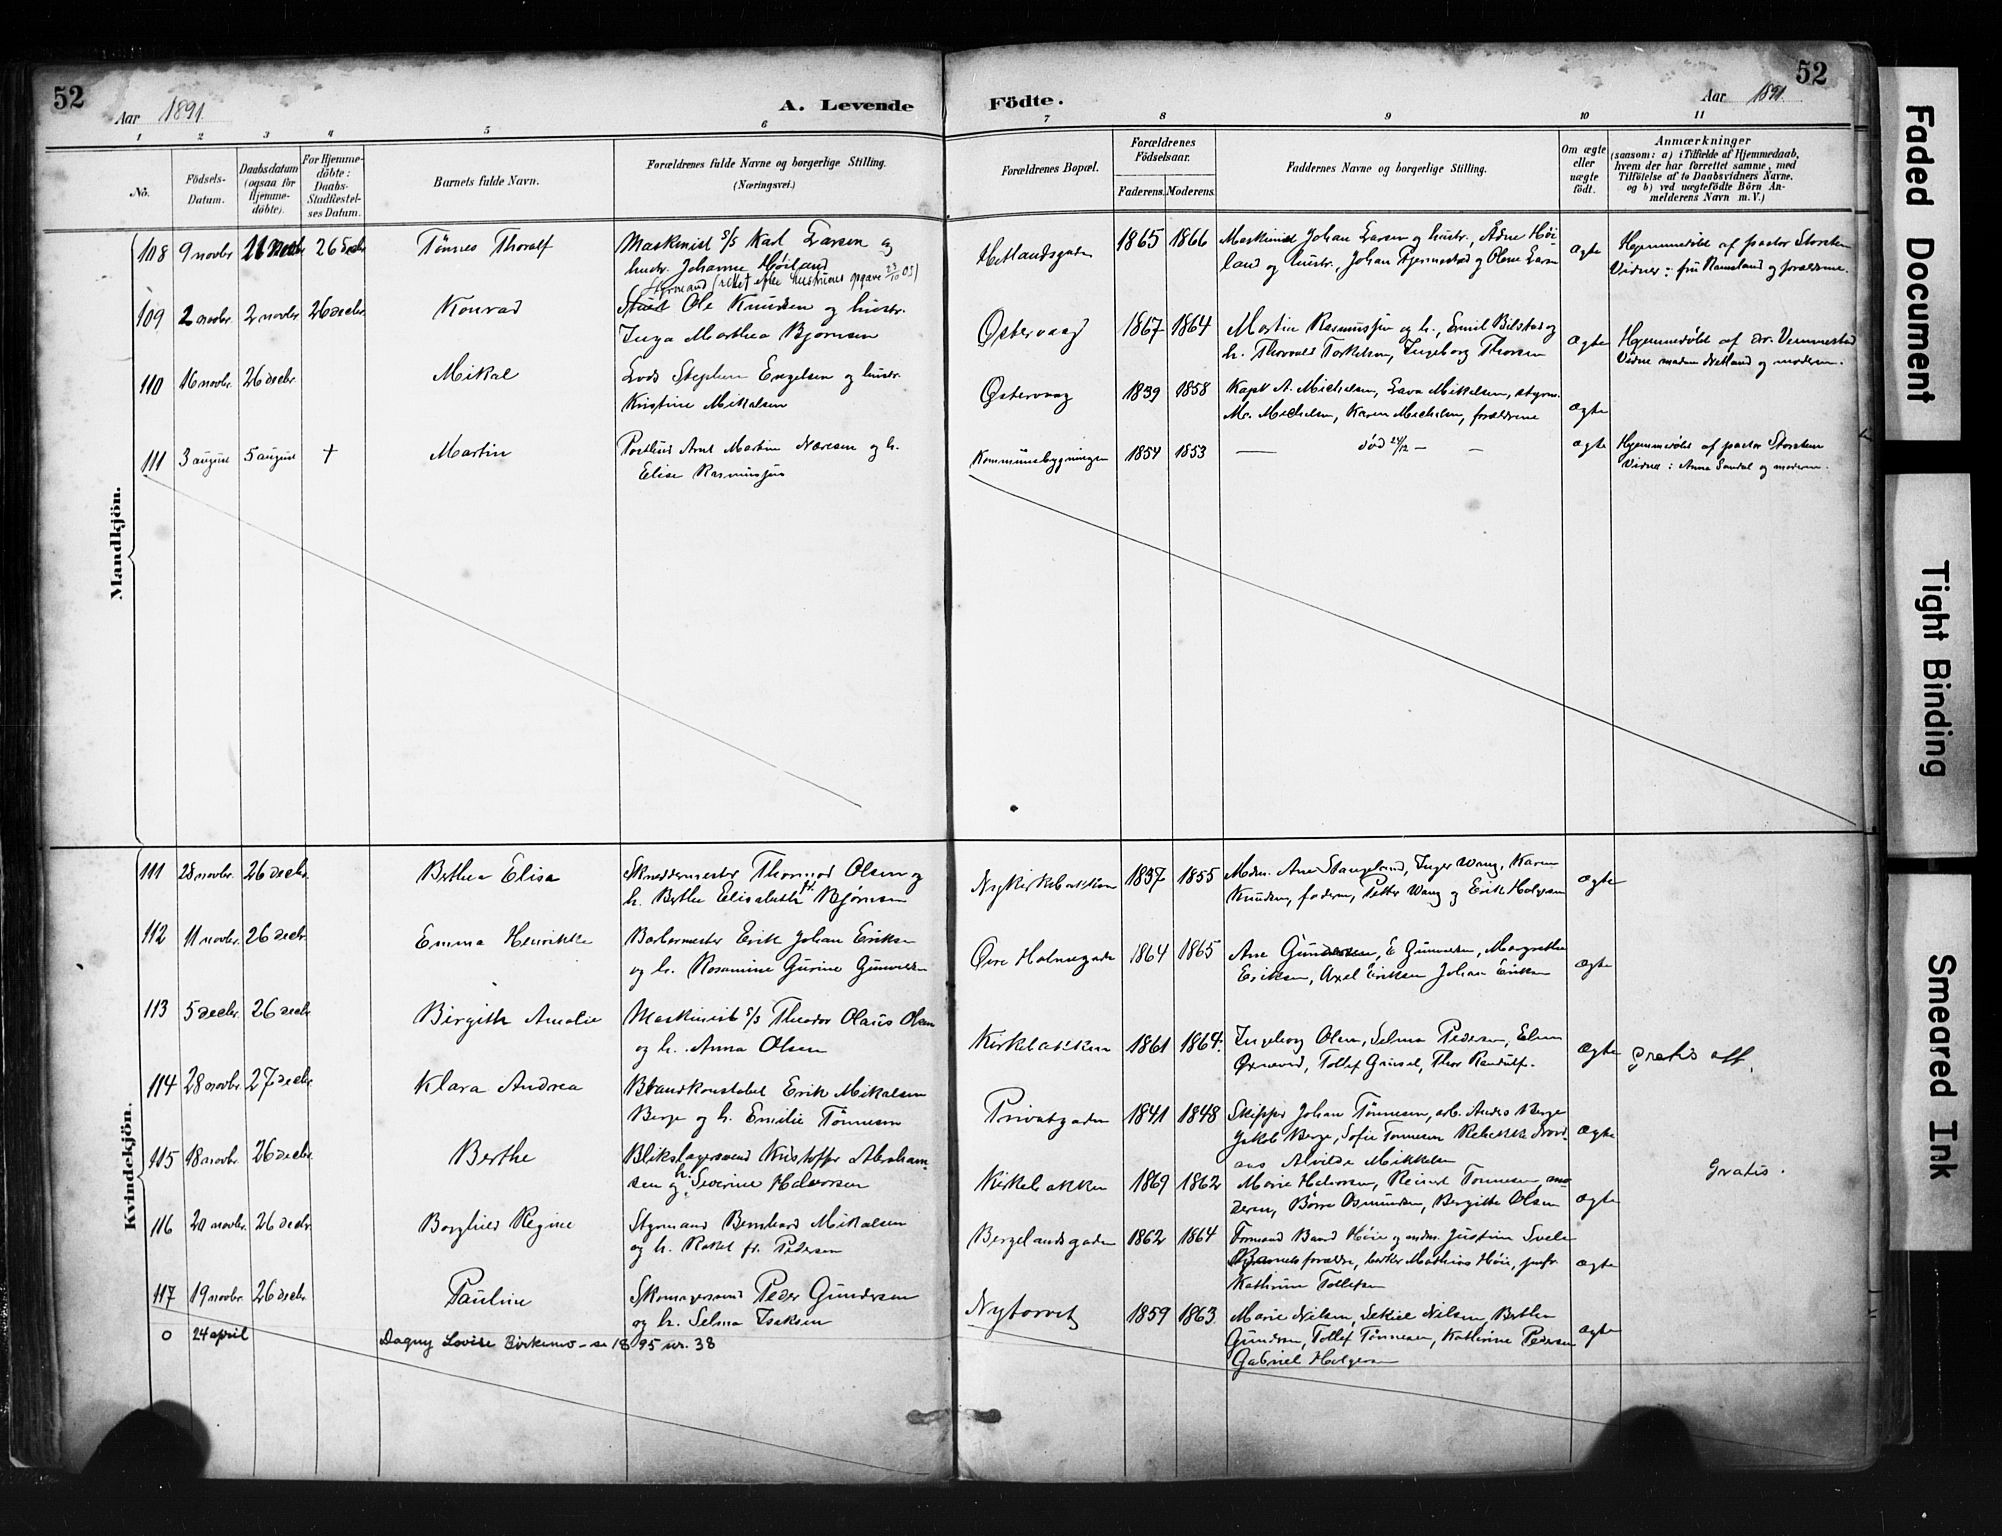 52
Aar 1891
A. Levende
Födte.
Aar 1891.
52
1 2 3 4 5 6 7 8 9 10 11
No.
Födsels-
Datum.
Daabsdatum
(ogsaa for
Hjemme-
döbte).
For Hjemme-
döbte:
Daabs-
Stadfæstel-
ses Datum.
Barnets fulde Navn.
Forældrenes fulde Navne og borgerlige Stilling.
(Næringsvei.)
Forældrenes Bopæl.
Forældrenes
Födselsaar.
Faderens. Moderens.
Faddernes Navne og borgerlige Stilling.
Om ægte
eller
uægte
födt.
Anmærkninger
(saasom: a) i Tilfælde af Hjemmedaab,
hvem der har forrettet samme, med
Tilföielse af to Daabsvidners Navne.
og b) ved uægtefödte Börn An-
melderens Navn m. V.)
Mandkjön.
108 9 novbr. 26 decbr Tönnes Thoralf
Maskinist S/S Karl Larsen og
hustr. Johanne Höiland
Hetlandsgaden 1865 1866
Maskinist Johan Larsen og hustr., Ådne Höi-
land og hustr., Johan Tjermestad og Olene Larsen
ægte
Hjemmedöbt af pastor Storsten
Vidner: fru Ramsland og forældrene.
109 2 novbr. 2 novbr 26 decbr. Konrad
Styrmand (rettet efter hustruens opgave 23/10 05)
Ole Knudsen og hustr.
Inga Marthea Bjørnsen
Østervaag 1867 1864
Martin Rasmussen og h., Emil Bilstad og
h. Thorvald Torkelsen, Ingeborg Thorsen
ægte
Hjemmedöbt af dr. Vemmestad
Vidne madm Netland og moderen.
110 16 novbr. 26 decbr. Mikal
Lods Stephen Engelsen og hustr.
Kristine Mikalsen
Østervaag 1839 1858
Kapt A. Michelsen, Lava Mikelsen, styrm.
M. Michelsen, Karen Michelsen, forældrene
ægte
111 3 august 5 august † Martin
Postbud Arnt Martin Næresen og h.
Elise Rasmussen
Kommunebygningen 1854 1853
— död 24/12 — —
ægte
Hjemmedöbt af pastor Storsten
Vidner: Anna Sandal og moderen.
Kvindekjön.
111 28 novbr. 26 decbr. Berthea Elisa
Skreddermester Thormod Olsen og
h. Berthe Elisabeth f. Bjørnsen
Nykirkebakken 1837 1855
Mdm. Ane Stangeland, Inger Wang, Karen
Knudsen, faderen, Petter Wang og Erik Holgersen
ægte
112 11 novbr. 26 decbr. Emma Henrikke
Barbermester Erik Johan Eriksen
og h. Rosamine Gurine Gunvaldsen
Övre Holmegade 1864 1865
Ane Gundersen, E Gunnesen, Margrethe
Eriksen, Axel Eriksen Johan Eriksen
ægte
113 5 decbr. 26 decbr Birgith Amalie
Maskinist S/S Theodor Olaus Olsen
og h. Anna Olsen
Kirkebakken 1861 1864.
Ingeborg Olsen, Selma Pedersen, Elen
Tollef Grinsel, Thor Randulf.
ægte
gratis att.
114 28 novbr. 27 decbr. Klara Andrea
Brandkonstabel Erik Mikalsen
Berge og h. Emilie Tönnesen
Privatgaden 1841 1848
Skipper Johan Tönnesen, arb. Anders Berge
Jakob Berge, Sofie Tönnesen Rebekka
Alvilde Mikkelsen
ægte
115 18 novbr. 26 decbr. Berthe
Blikslagersvend Kristoffer Abraham-
sen og h. Severine Halvorsen
Kirkebakken 1869 1862
Marie Halvorsen, Reinert Tönnesen, mo-
deren, Börre Osmundsen, Bergitte Olsen
ægte
Gratis.
116 20 novbr. 26 decbr. Borghild Regine
Styrmand Bernhard Mikalsen
og h. Rakel f. Pedersen
Bergelandsgaden 1862 1864
Formand Baard Høie og mdm. Justine Svela
Barnets forældre, Mathias Höie, jomfr.
Kathrine Tollefsen
ægte
117 19 novbr. 26 decbr. Pauline
Skomagersvend Peder Gundersen
og h. Selma Isaksen
Nytorvet 1859 1863.
Marie Nilsen, Nilsen, Berthe
Gundersen, Tollef Tönnesen, Kathrine Pedersen
Gabriel Holgersen
ægte
0 24 april Dagny Lovise Birkemo - se 1895 nr. 38
Faded Document
Tight Binding
Smeared Ink